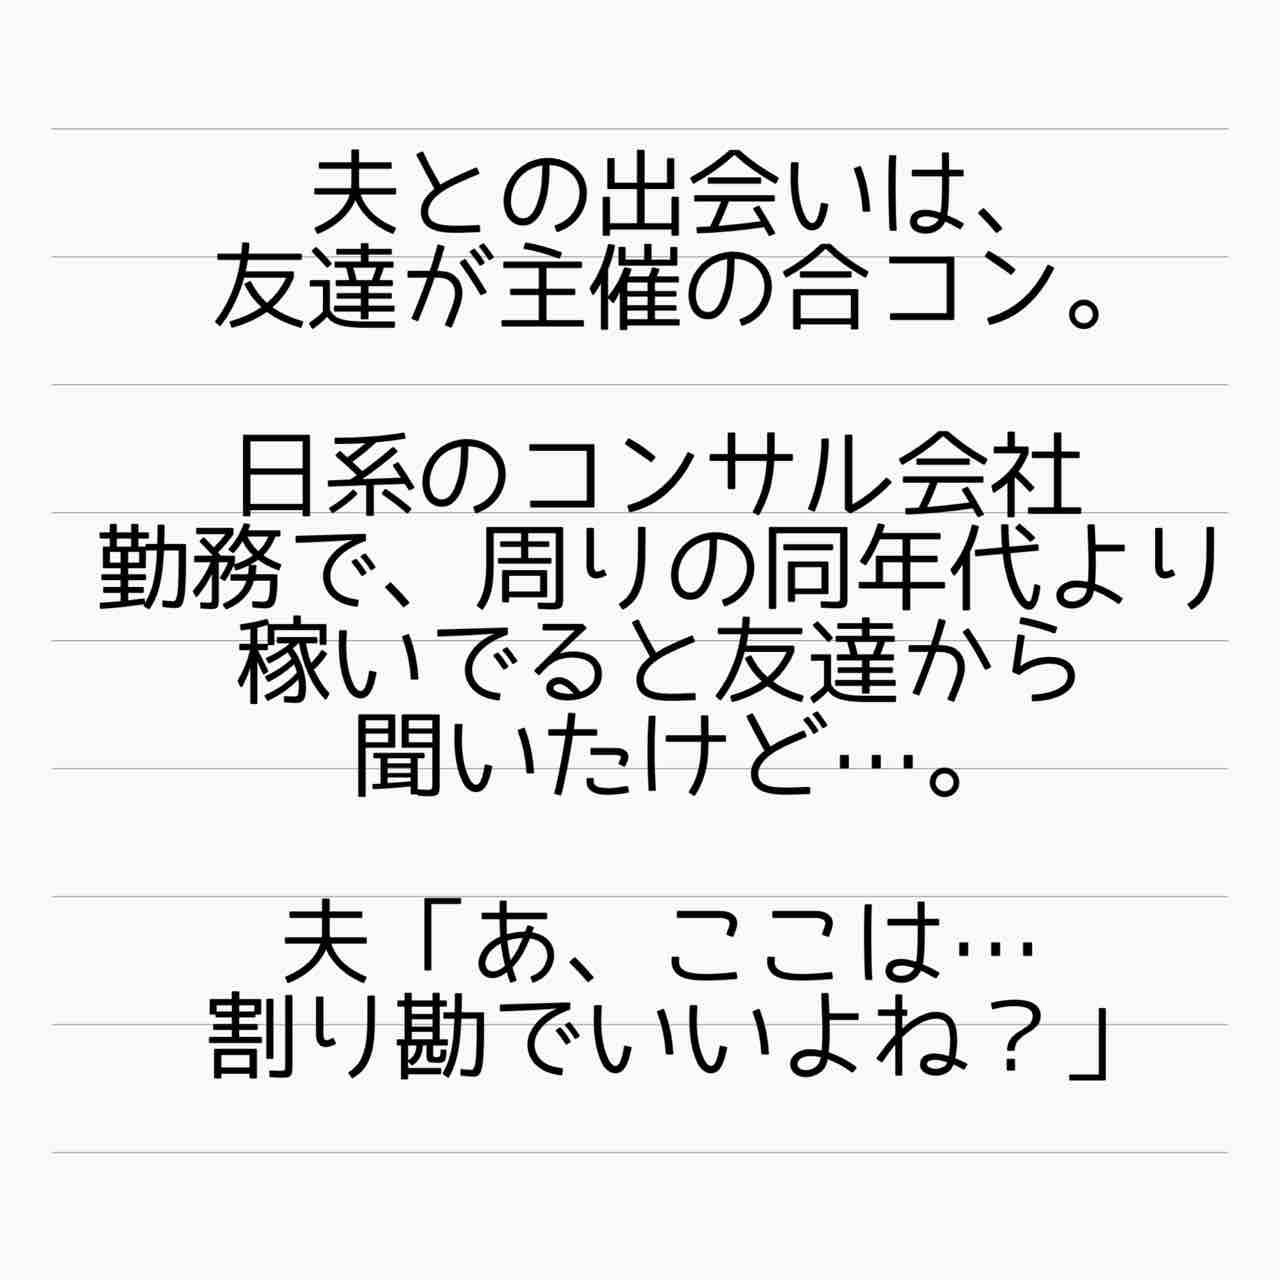 夫との出会いは、
友達が主催の合コン。
日系のコンサル会社
勤務で、周りの同年代より
稼いでると友達から
聞いたけど…。
夫「あ、ここは…
割り勘でいいよね？」